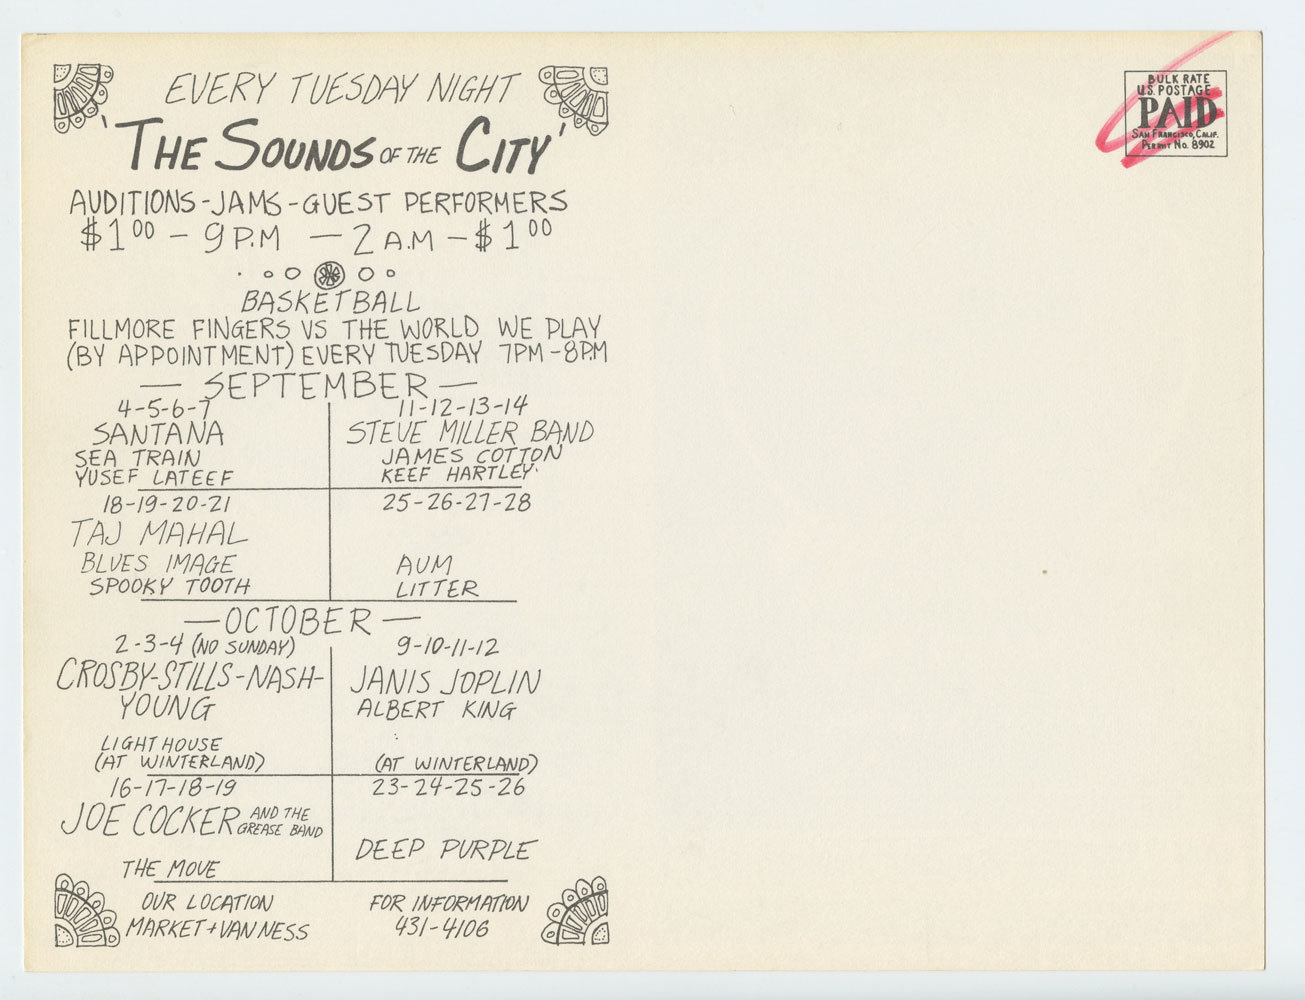 EVERY TUESDAY NIGHT
'THE SOUNDS OF THE CITY'
AUDITIONS-JAMS-GUEST PERFORMERS
$100 - 9 P.M - 2 A.M - $100
BASKETBALL
FILLMORE FINGERS VS THE WORLD WE PLAY
(BY APPOINTMENT) EVERY TUESDAY 7PM-8P.M
- SEPTEMBER -
4-5-6-7
SANTANA
SEA TRAIN
YUSEF LATEEF
11-12-13-14
STEVE MILLER BAND
JAMES COTTON
KEEF HARTLEY
18-19-20-21
TAJ MAHAL
BLUES IMAGE
SPOOKY TOOTH
25-26-27-28
AUM
LITTER
- OCTOBER -
2-3-4 (NO SUNDAY)
CROSBY-STILLS-NASH-
YOUNG
LIGHTHOUSE
(AT WINTERLAND)
9-10-11-12
JANIS JOPLIN
ALBERT KING
(AT WINTERLAND)
16-17-18-19
JOE COCKER AND THE
GREASE BAND
THE MOVE
23-24-25-26
DEEP PURPLE
OUR LOCATION
MARKET+VAN NESS
FOR INFORMATION
431-4106
BULK RATE
U.S. POSTAGE
PAID
SAN FRANCISCO, CALIF.
PERMIT No. 8902